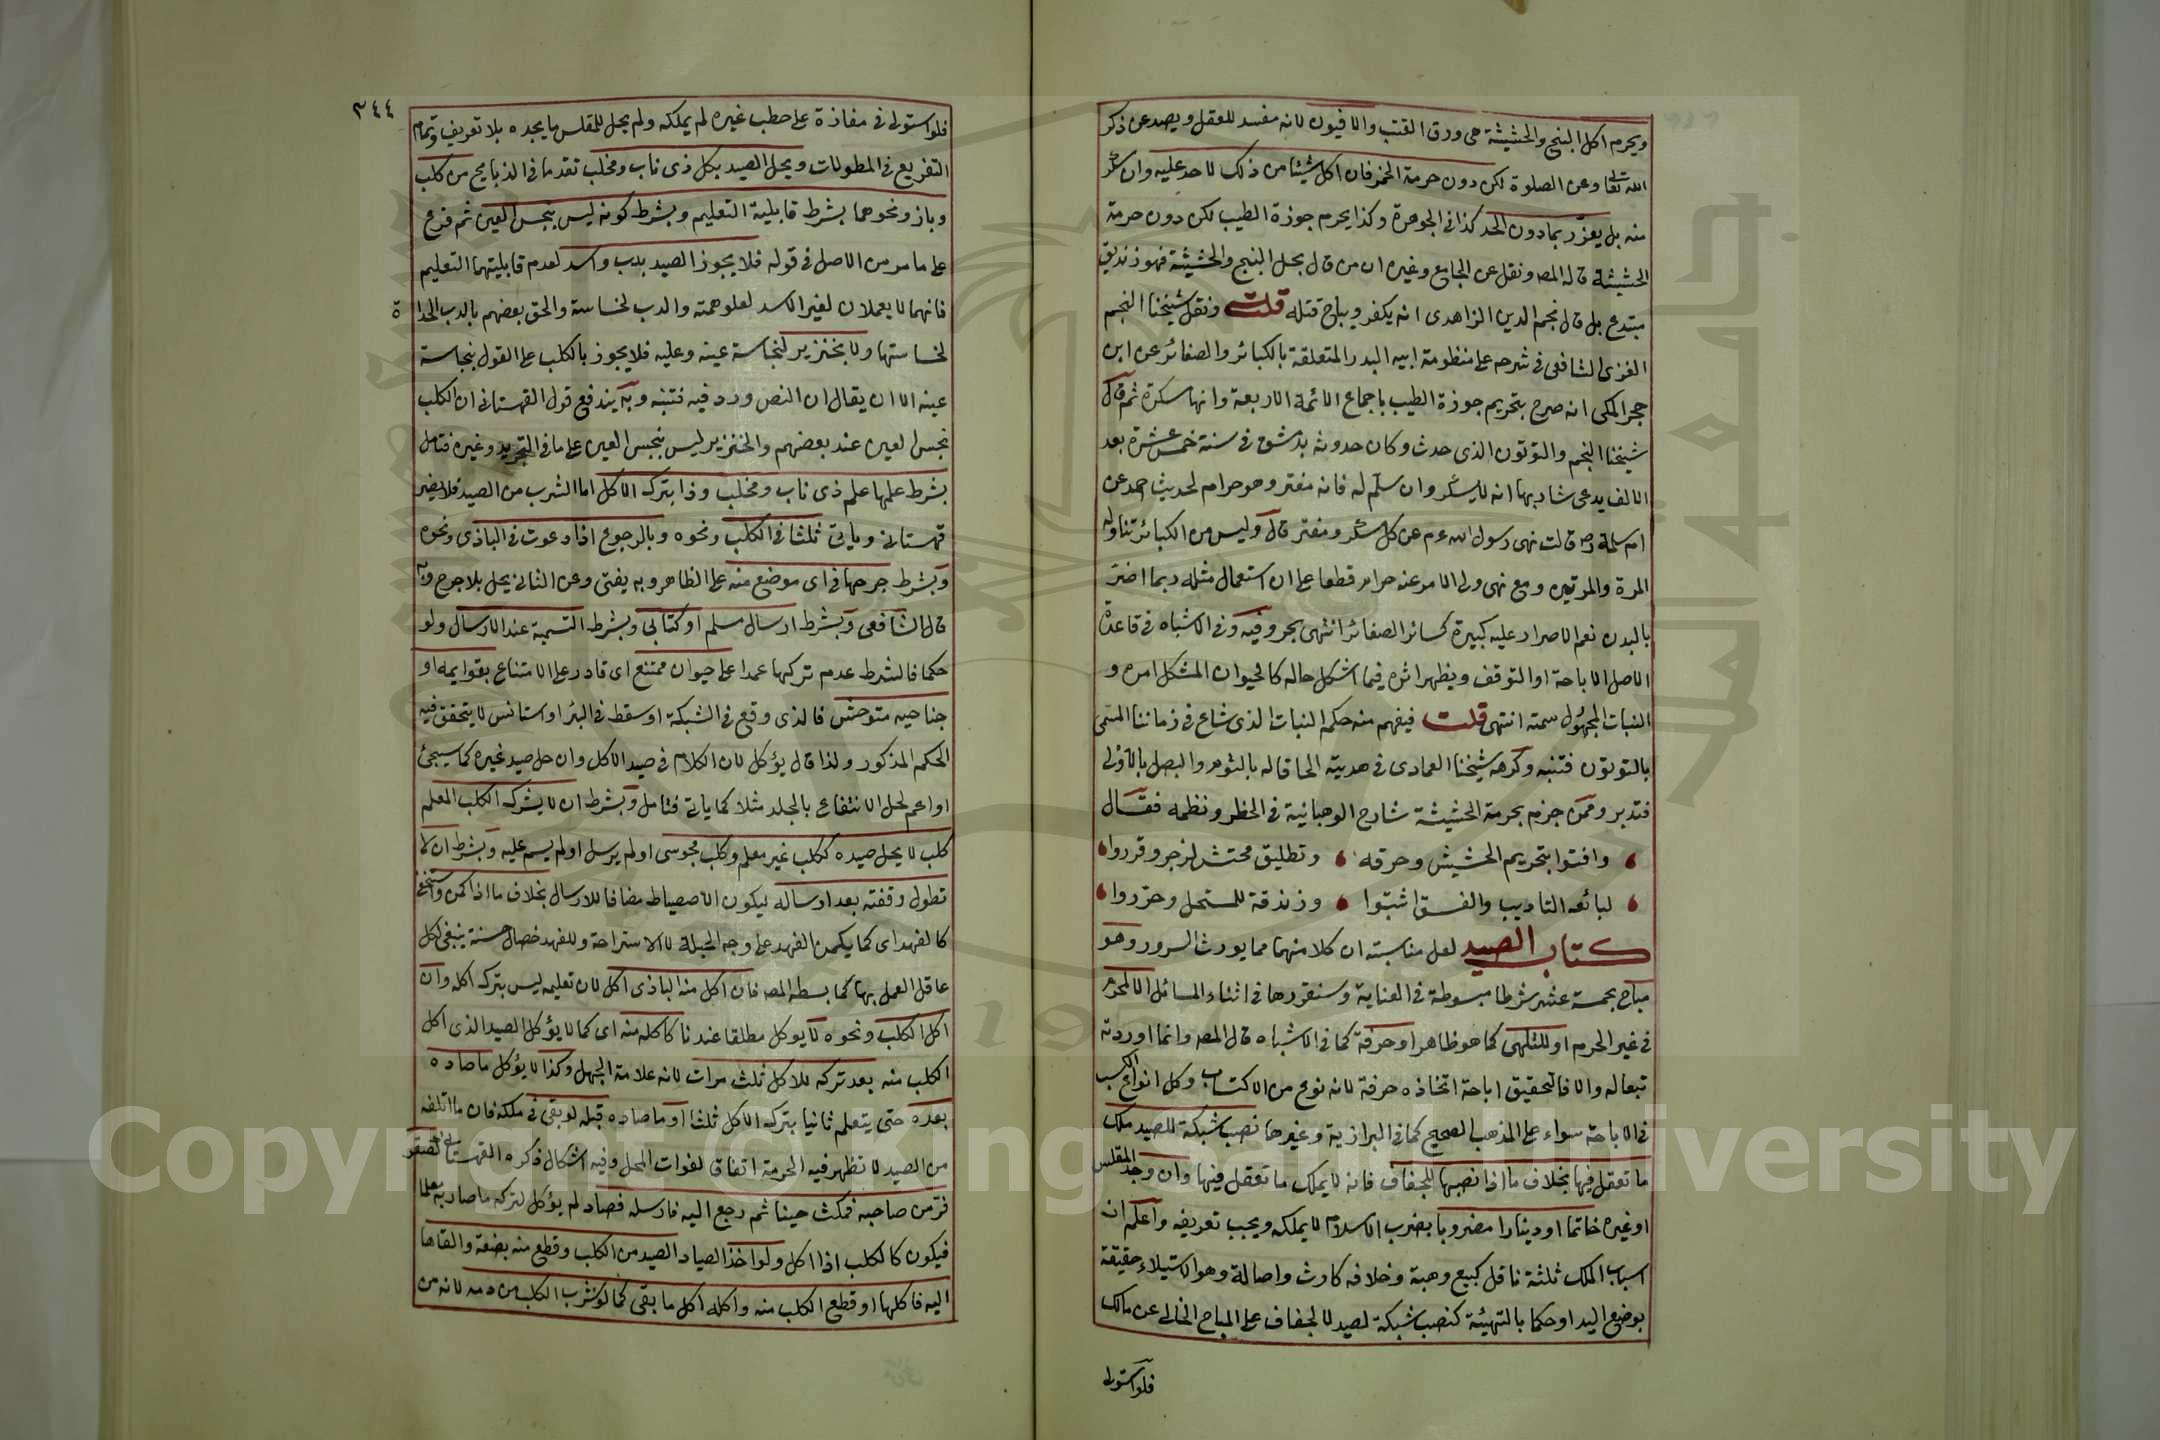 ويحرم اكل البنج والحشيشة هي ورق القنب والافيون لانه مفسد للعقل ويصد عن ذكر
الله تعالى وعن الصلوة لكن دون حرمة الخمر فان اكل شيئا من ذلك لا حد عليه وان سكر
منه بل يعزر بما دون الحد كذا في الجوهرة وكذا يحرم جوزة الطيب لكن دون حرمة
الحشيشة قاله المصـ ونقل عن الجامع وغيره ان من قال بحل البنج والحشيشة فهو زنديق
مبتدع بل قال نجم الدين الزاهدى انه يكفر ويباح قتله قلت ونقل شيخنا النجم
الغزى الشافعى في شرحه على منظومة ابيه البدر المتعلقة بالكبائر والصغائر عن ابن
حجر المكى انه صرح بتحريم جوزة الطيب باجماع الائمة الاربعة وانها سكرة ثم قال
شيخنا النجم والتوتون الذى حدث وكان حدوثه بدمشق في سنة خمس عشرة بعد
الالف يدعى شاربها انه لا يسكر وان سلم له فانه مفتر وهو حرام لحديث احمد عن
ام سلمة رضـ قالت نهى رسول الله عم عن كل مسكر ومفتر قال وليس من الكبائر تناوله
المرة والمرتين ومع نهى ولى الامر عنه حرام قطعا على ان استعمال مثله ربما اضر
بالبدن نعم الاصرار عليه كبيرة كسائر الصغائر انتهى بحروفيه وفي الاشباه في قاعدة
الاصل الاباحة او التوقف ويظهر اثره فيما اشكل حاله كالحيوان المشكل امره و
النبات المجهول سمته انتهى قلت فيفهم منه حكم النبات الذى شاع في زماننا المسمى
بالتوتون فتنبه وكرهه شيخنا العمادى في هديته الحاقا له بالثوم والبصل بالاولى
فتدبر وممن جزم بحرمة الحشيشة شارح الوهبانية في الحظر ونظمه فقال
وافتوا بتحريم الحشيش وحرقه وتطليق محتش لزجر وقرروا
لبائعه التاديب والفسق اثبتوا وزندقة للمستحل وحرروا
كتاب الصيد لعل مناسبته ان كلا منهما مما يورث السرور وهو
مباح بخمسة عشر شرطا مبسوطة في العناية وسنقررها في اثناء المسائل الا لمحرم
في غير الحرم او للتلهى كما هو ظاهر او حرفة كما في الاشباه قال المصـ وانما اوردته
تبعا له والا فالتحقيق اباحة اتخاذه حرفة لانه نوع من الاكتساب وكل انواع الكسب
في الاباحة سواء على المذهب الصحيح كما في البزازية وغيرها نصب شبكة للصيد ملك
ما تعقل فيها بخلاف ما اذا نصبها للجفاف فانه لا يملك ما تعقل فيها وان وجد المقلس
او غيره خاتما او دينارا مضروبا بضرب الاسلام لا يملكه ويجب تعريفه واعلم ان
اسباب الملك ثلثة ناقل كبيع وهبة وخلافه كارث واصالة وهو الاستيلاء حقيقة
بوضع اليد او حكما بالتهيئة كنصب شبكة لصيد لا لجفاف على المباح الخالى عن مالك
فلو استولى
٣٤٤
فلو استولى في مفازة على حطب غيره لم يملكه ولم يحل للمقلس ما يجده بلا تعريف وتمام
التفريع في المطولات ويحل الصيد بكل ذى ناب ومخلب تقدما في الذبايح من كلب
وباز ونحوهما بشرط قابلية التعليم وبشرط كونه ليس بنجس العين ثم فرع
على ما مر من الاصل في قوله فلا يجوز الصيد بدب واسد لعدم قابليتهما التعليم
فانهما لا يعملان لغير الاسد لعلو همته والدب لخساسته والحق بعضهم بالدب الحدا
ة
لخساستها ولا بخنزير لنجاسة عينه وعليه فلا يجوز بالكلب على القول بنجاسة
عينه الا ان يقال ان النص ورد فيه فتنبه وبه يندفع قول القهستانى ان الكلب
نجس العين عند بعضهم والخنزير ليس بنجس العين على ما في التجريد وغيره فتامل
بشرط علمها علم ذى ناب ومخلب وذا بترك الاكل اما الشرب من الصيد فلا يضر
قهستانى وياتى ثلثا في الكلب ونحوه وبالرجوع اذا دعوت في البازى ونحوه
وبشرط جرحها في اى موضع منه على الظاهر وبه يفتى وعن الثانى يحل بلا جرح وبه
قال الشافعى وبشرط ارسال مسلم او كتابى وبشرط التسمية عند الارسال ولو
حكما فالشرط عدم تركها عمدا على حيوان ممتنع اى قادر على الامتناع بقوايمه او
جناحيه متوحش فالذى وقع في الشبكة او سقط في البئر او استانس لا يتحقق فيه
الحكم المذكور ولذا قال يؤكل لان الكلام في صيد الاكل وان حل صيد غيره كما سيجئ
او اعم لحل الانتفاع بالجلد مثلا كما ياتى فتامل وبشرط ان لا يشرك الكلب المعلم
كلب لا يحل صيده ككلب غير معلم وكلب مجوسى او لم يرسل او لم يسم عليه وبشرط ان لا
تطول وقفته بعد ارساله ليكون الاصطياط مضافا للارسال بخلاف ما اذا كمن واستخفى
كالفهد اى كما يكمن الفهد على وجه الحيلة لا الاستراحة وللفهد خصال حسنة ينبغى لكل
عاقل العمل بها كما بسطه المصـ فان اكل منه البازى اكل لان تعليمه ليس بترك اكله وان
اكل الكلب ونحوه لا يوكل مطلقا عندنا كاكله منه اى كما لا يؤكل الصيد الذى اكل
الكلب منه بعد تركه للاكل ثلث مرات لانه علامة الجهل وكذا لا يؤكل ما صاده
بعده حتى يتعلم ثانيا بترك الاكل ثلثا او ما صاده قبله لو بقى في ملكه فان ما اتلفه
من الصيد لا تظهر فيه الحرمة اتفاق لفوات المحل وفيه اشكال ذكره القهستانى كصقر
فر من صاحبه فمكث حينا ثم رجع اليه فارسله فصاد لم يؤكل لتركه ما صار به معلما
فيكون كالكلب اذا اكل ولو اخذ الصياد الصيد من الكلب وقطع منه بضعة والقاها
اليه فاكلها او قطع الكلب منه واكله اكل ما بقى كما لو شرب الكلب من دمه لانه من
Copyright © King Saud University
جامعة الملك سعود
1957